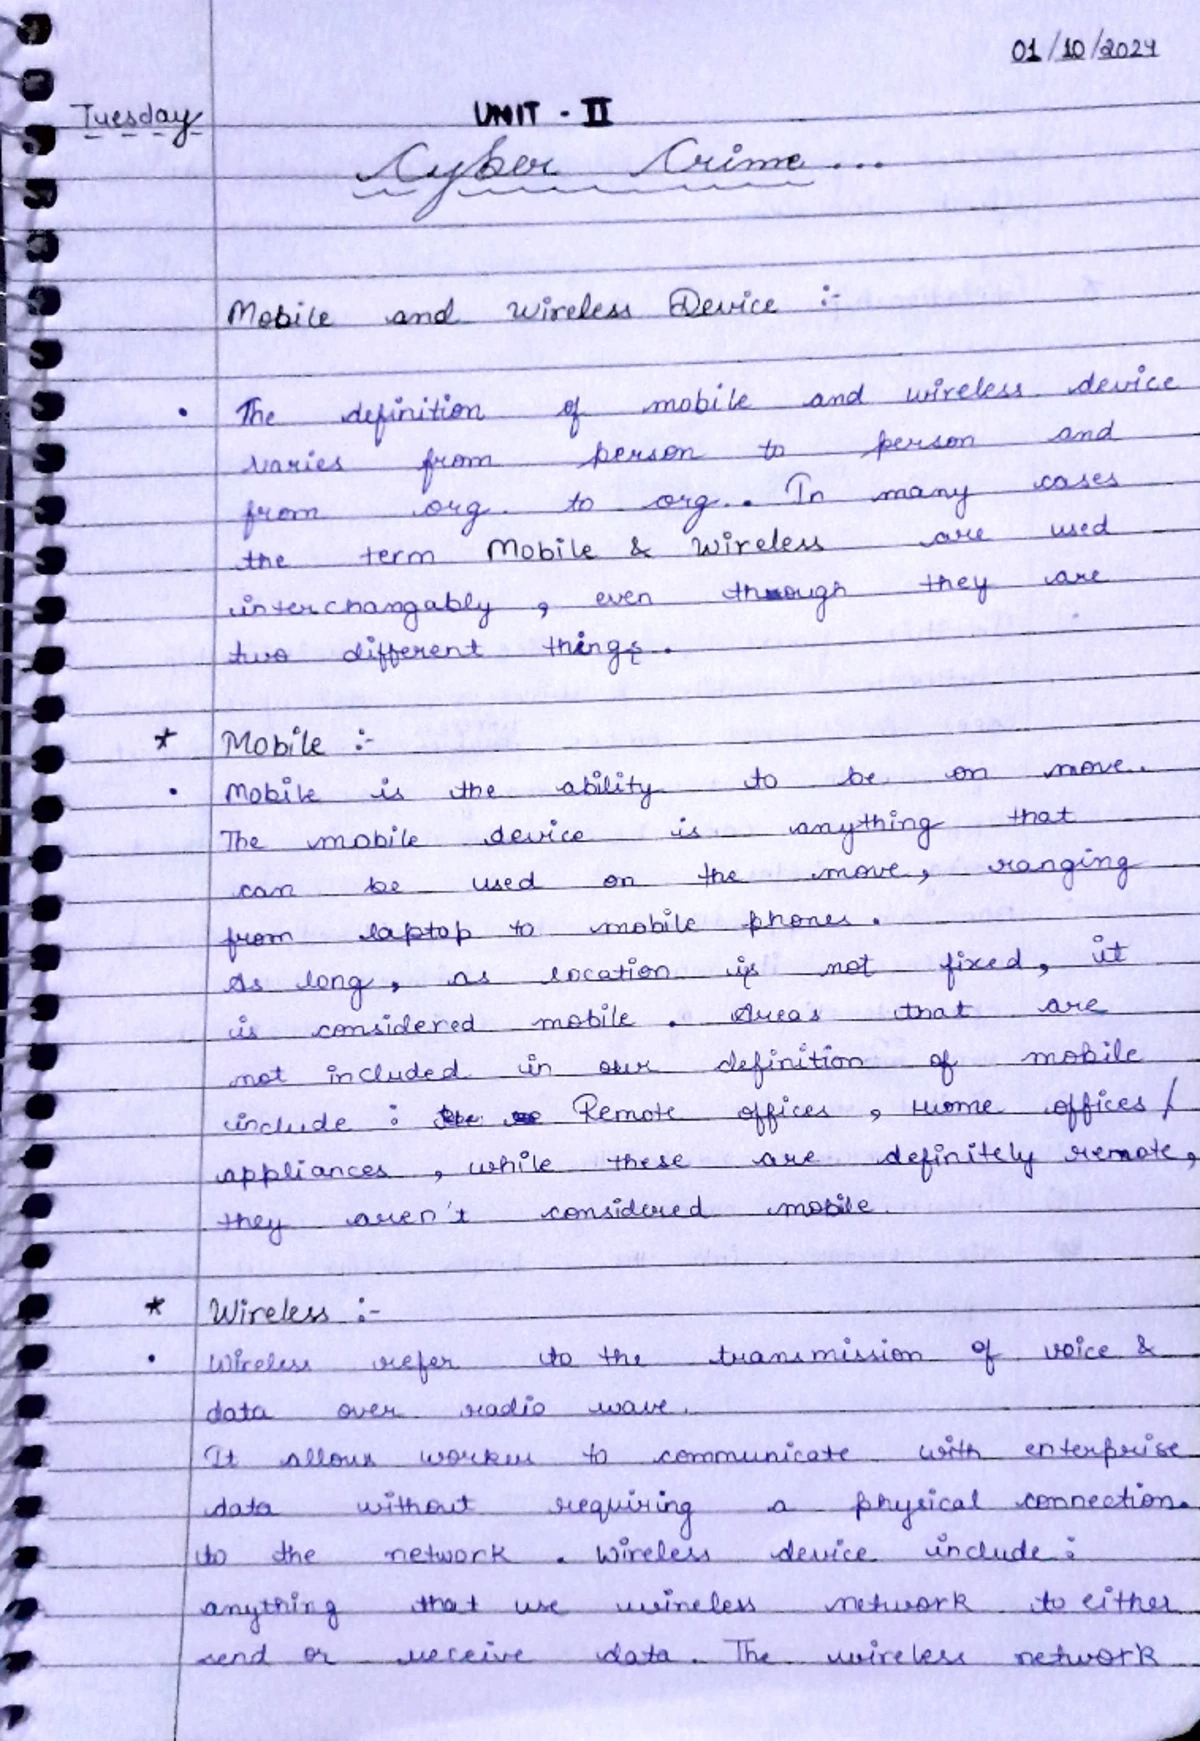 01/10/2024
Tuesday
UNIT - II
Cyber Crime...
Mobile and Wireless Device :-
• The definition of mobile and wireless device
varies from person to person and
from org. to org.. In many cases
the term Mobile & Wireless are used
interchangably, even through they are
two different things.
* Mobile :-
• Mobile is the ability to be on move.
The mobile device is anything that
can be used on the move, ranging
from laptop to mobile phones.
As long, as location is not fixed, it
is considered mobile. Areas that are
not included in our definition of mobile
include : Remote offices, Home offices /
appliances, while these are definitely remote,
they aren't considered mobile.
* Wireless :-
• Wireless refer to the transmission of voice &
data over radio wave.
It allows workers to communicate with enterprise
data without requiring a physical connection.
to the network. Wireless device include :
anything that use wireless network to either
send or receive data. The wireless network